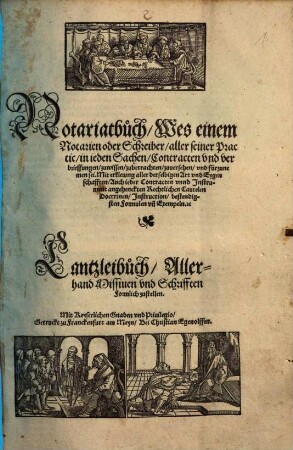 Notariatbůch/ Wes einem
Notarien oder Schreiber/ aller seiner Prac
tic/ in ieden Sachen/ Contracten vnd ver
brieffungen/ zuwissen/ zubetrachten/ zuuersehen/ vnd fürzune
men sei. Mit erklerung aller derselbigen Art vnd Eygen
schafften/ Auch ieder Contracten vnnd Instru-
angehenckten Rechtlichen Cautelen
Doctrinen/ Instruction/ bestendig-
sten Formulen vñ Exempeln. ꝛc
Cantzleibůch/ Aller-
hand Missiuen vnd Schrifften
Förmlich zustellen.
Mit Keyserlichen Gnaden vnd Priuilegio/
Getruckt zu Franckenfurt am Meyn/ Bei Christian Egenolffen.